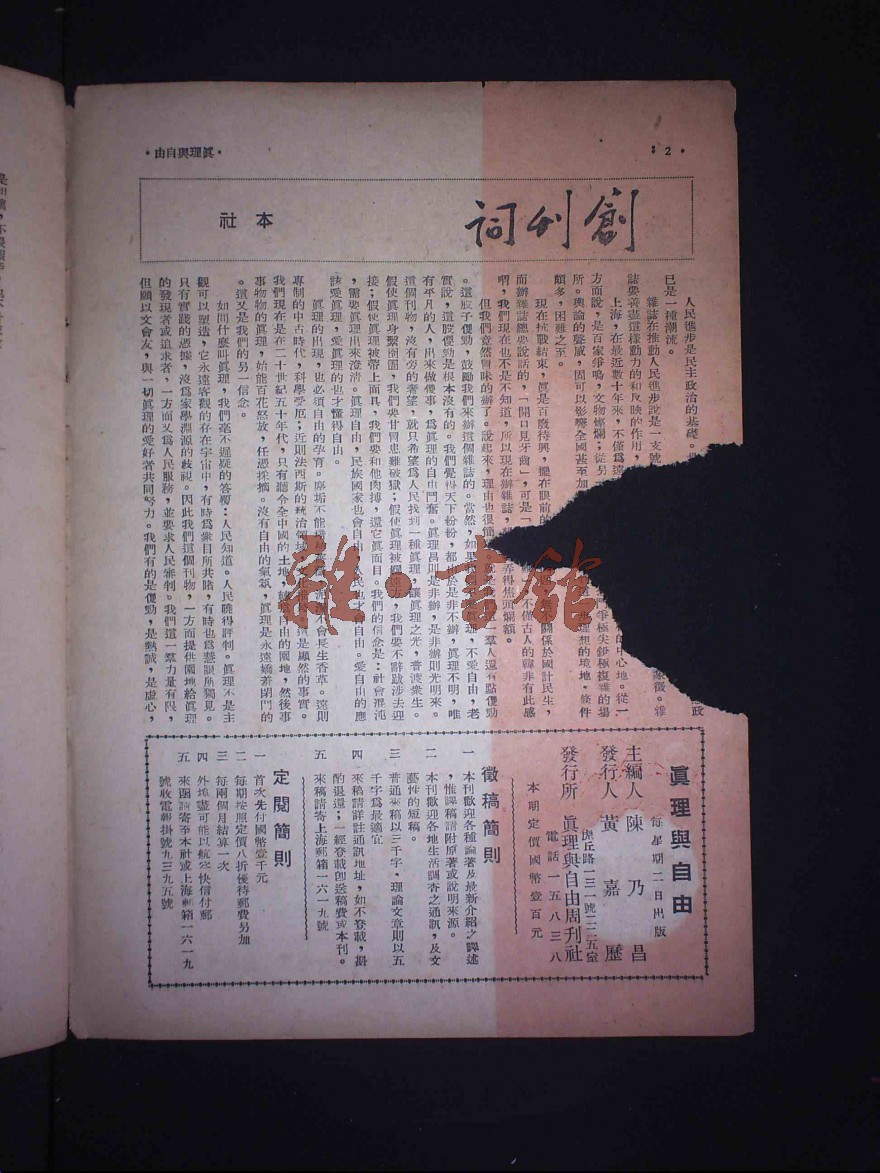 ・2・
・眞理與自由・
創刊詞
本社
人民進步是民主政治的基礎。
已是一種潮流。
雜誌在推動人民進步說是一支號
誌要善盡這樣動力的和反映的作用，
上海，在最近數十年來，不僅為遠
的中心地。從一
方面說，是百家爭鳴，文物燦爛；從另
鬥爭極尖銳極複雜的場
所。輿論的聲威，固可以影響全國甚至加
理想的境地，條件
頗多，困難之至。
現在抗戰結束，眞是百廢待興，擺在眼前的
關係於國計民生，
而辦雜誌總要說話的，「開口見牙齒」，可是「
不僅古人的韓非有此感
喟，我們現在也不是不知道，所以現在辦雜誌，
弄得焦頭爛額。
但我們竟然冒昧的辦了。說起來，理由也很簡
一羣人還有點傻勁
。這股子傻勁，鼓勵我們來辦這個雜誌的。當然，如果
眞理，不愛自由，老
實說，這股傻勁是根本沒有的。我們覺得天下紛紛，都
於是非不辦，眞理不明，唯
有平凡的人，出來做傻事，為眞理的自由鬥奮。眞理昌則是非辦，是非辦則光明來。
這個刊物，沒有旁的奢望，就只希望為人民找到一種眞理，讓眞理之光，普渡衆生。
假使眞理身繫囹圄，我們要甘冒患難破獄；假使眞理被綑遠方，我們要不辭跋涉去迎
接；假使眞理被帶上面具，我們要和他肉搏，還它眞面目。我們的信念是：社會混沌
，需要眞理出來澄清。眞理自由，民族國家也會自由，人民也才會自由。愛自由的應
該愛眞理，愛眞理的也才懂得自由。
眞理的出現，也必須自由的孕育。塵垢不能
不會長生香草。遠則
專制的中古時代，科學受厄；近則法西斯的統治領域，文
這是顯然的事實。
我們現在是在二十世紀五十年代，只有聽令全中國的土地，
自由的園地，然後事
事物物的眞理，始能百花怒放，任憑採摘。沒有自由的氣氛，眞理是永遠嬌羞閉門的
。這又是我們的另一信念。
如問什麼叫眞理，我們毫不遲疑的答覆：人民知道。人民曉得評判。眞理不是主
觀可以塑造，它永遠客觀的存在宇宙中，有時為衆目所共睹，有時也為慧眼所獨見。
只有實踐的憑據，沒為家學淵源的歧視。因此我們這個刊物，一方面提供園地給眞理
的發現者或追求者，一方面又為人民服務，並要求人民審判。我們這一羣力量有限，
但願以文會友，與一切眞理的愛好者共同努力。我們有的是傻勁，是熱誠，是虛心，
眞理與自由
每星期二日出版
主編人 陳乃昌
發行人 黃嘉歷
虎丘路一三一號二二五室
發行所 眞理與自由周刊社
電話一五八三八
本期定價國幣壹百元
徵稿簡則
一 本刊歡迎各種論著及最新介紹之譯述
，惟譯稿請附原著或說明來源。
二 本刊歡迎各地生活調查之通訊，及文
藝性的短稿。
三 普通來稿以三千字，理論文章則以五
千字為最適宜
四 來稿請詳註通訊地址，如不登載，斟
酌退還；一經登載卽送稿費或本刊。
五 來稿請寄上海郵箱一六一九號
定閱簡則
一 首次先付國幣壹千元
二 每期按照定價八折優待郵費另加
三 每兩個月結算一次
四 外埠盡可能以航空快信付郵
五 來函請寄至本社或上海郵箱一六一九
號收電報掛號九三九五號
雜·書館